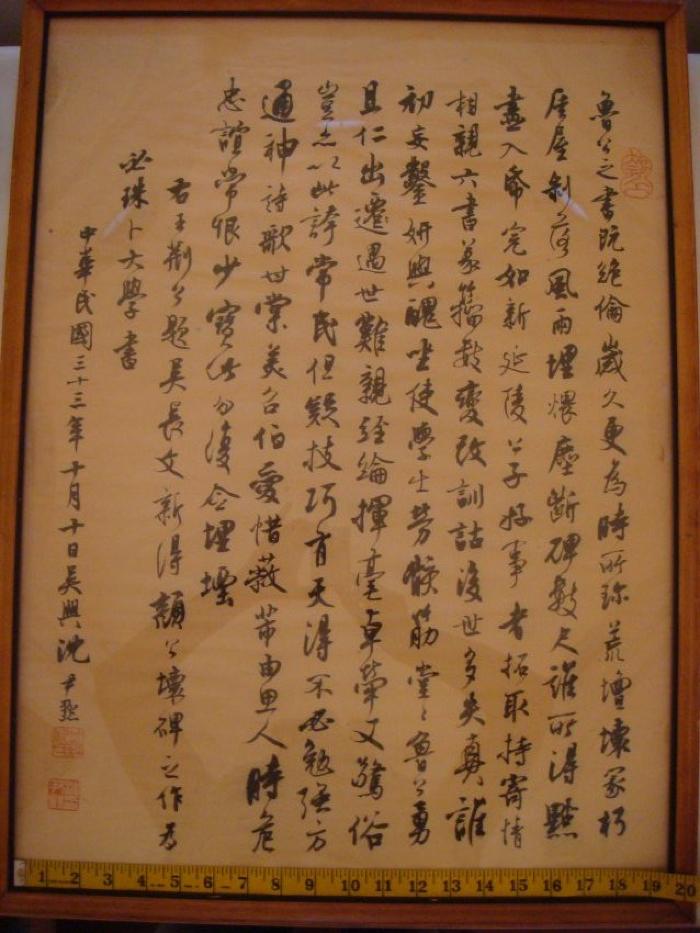 魯公之書既絕倫歲久更為時所珍荒壇壞冢朽
崖屋剝落風雨埋煨塵斷碑數尺誰所得點
畫入帋完如新延陵公子好事者拓取持寄情
相親六書篆籀數變改訓詁後世多失真誰
初妄鑿妍與醜坐使學士勞骸筋堂〻魯公勇
且仁出遷遇世難親經綸揮毫卓犖又驚俗
豈亦以此誇常民但疑技巧有天得不必勉強方
通神詩歌甘棠美召伯愛惜蔽芾由思人時危
忠誼常恨少寶此勿復令埋堙
右王荊公題吳長文新得顏公壞碑之作為
必珠卜大學書
中華民國三十三年十月十日吳興沈尹默
1 2 3 4 5 6 7 8 9 10 11 12 13 14 15 16 17 18 19 20